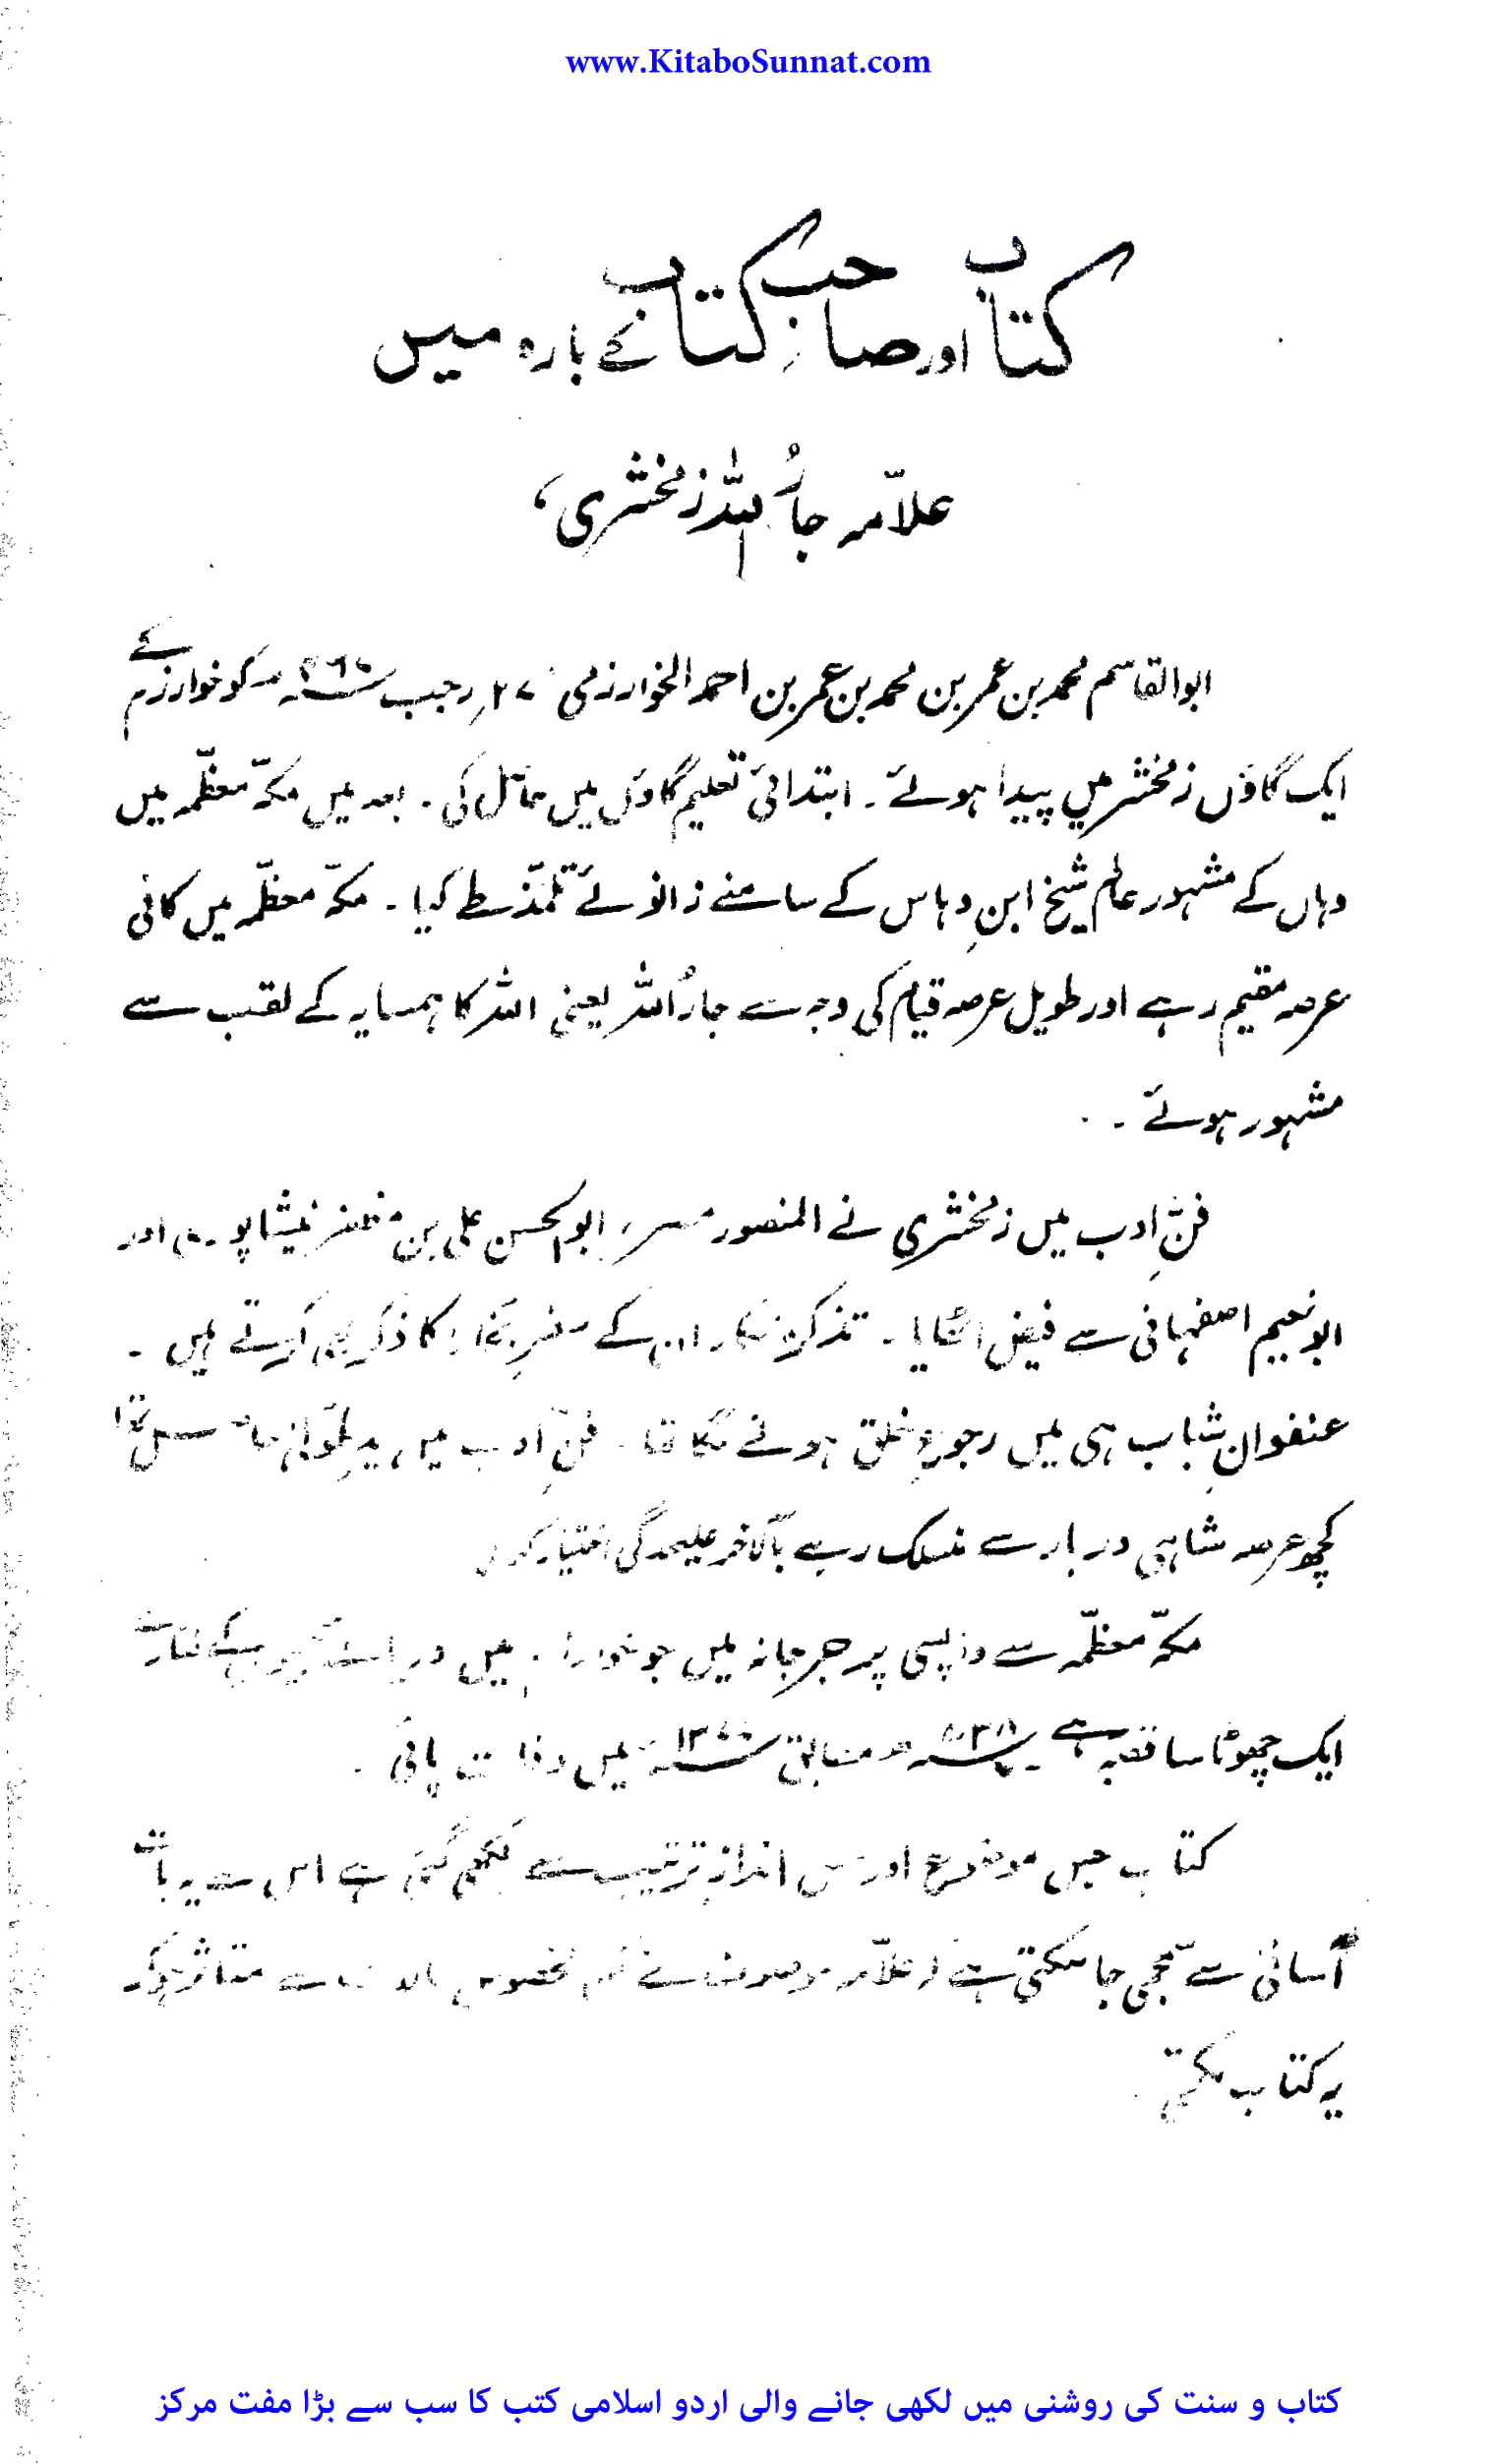 www.KitaboSunnat.com
کتاب اور صاحبِ کتاب کے بارہ میں
علاّمہ جارُ اللہ زمخشری،
ابوالقاسم محمد بن عمر بن محمد بن عمر بن احمد الخوارزمی ۲۷ رجب ۴۶۷ھ کو خوارزم کے
ایک گاؤں زمخشر میں پیدا ہوئے۔ ابتدائی تعلیم گاؤں میں حاصل کی۔ بعد میں مکّہ معظّمہ میں
وہاں کے مشہور عالم شیخ ابنِ وہاس کے سامنے زانوئے تلمّذ طے کیا۔ مکّہ معظّمہ میں کافی
عرصہ مقیم رہے اور طویل عرصہ قیام کی وجہ سے جارُ اللہ یعنی اللہ کا ہمسایہ کے لقب سے
مشہور ہوئے۔
فنِّ ادب میں زمخشری نے المنصور ابوالحسن علی بن مظفر نیشاپوری اور
ابو نعیم اصفہانی سے فیض اٹھایا۔ تذکرہ نگار ان کے سفرِ بغداد کا ذکر بھی کرتے ہیں۔
عنفوانِ شباب ہی میں رجوعِ خلق ہونے لگا تھا۔ فنِّ ادب میں
کچھ عرصہ شاہی دربار سے منسلک رہے بالآخر علیحدگی اختیار کر لی
مکّہ معظّمہ سے واپسی پر جرجانہ میں جو خوارزم میں دریائے کے کنارے
ایک چھوٹا سا قصبہ ہے۔ ۵۳۸ھ مطابق میں وفات پائی۔
کتاب جس موضوع اور جس اندازِ ترتیب سے لکھی گئی ہے اس سے یہ بات
آسانی سے سمجھی جا سکتی ہے کہ علاّمہ موصوف نے مخصوص حالات سے متاثر ہو کر
یہ کتاب لکھی
کتاب و سنت کی روشنی میں لکھی جانے والی اردو اسلامی کتب کا سب سے بڑا مفت مرکز